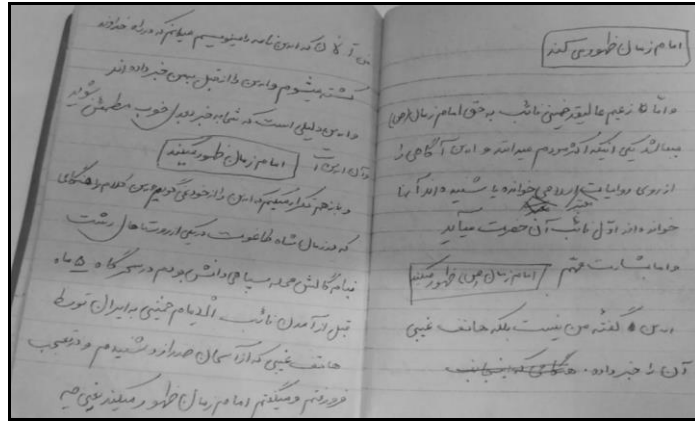 امام زمان ظهور می کند
و اما زعیم عالیقدر خمینی نائب به حق امام زمان (ص)
میباشد یکی آنیکه اکثر مردم میدانند و این آگاهی را
از روی روایات اسلامی خوانده یا شنیده اند آنها
خوانده اند اول نائب آن حضرت میآید
و اما بشارت مهم امام زمان (ص) ظهور میکند
این گفته من نیست بلکه هاتف غیبی
آن را خبر داده.
من الان که این نامه را مینویسم میدانم که در راه خداوند
کشته میشوم و این را از قبل بمن خبر داده اند
و این دلیلی است که شما به خبر بعدی خوب مطمئن شوید
و آن این است امام زمان ظهور میکند
و باز هم تکرار میکنم که این را از خود نمی گویم این کلام را هنگامی
که در زمان شاه طاغوت در یکی از روستاهای رشت
بنام گالش محله سپاهی دانش بودم در سحرگاه ۵ ماه
قبل از آمدن نائب امام خمینی به ایران توسط
هاتف غیبی که از آسمان صدا زد و شنیدم و در تعجب
فرو رفتم و میگفتم امام زمان ظهور میکند یعنی چه